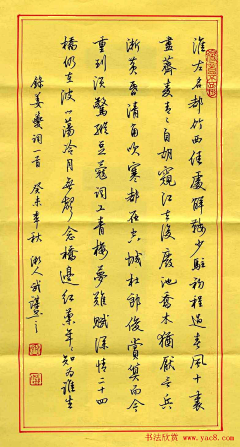 淮左名都竹西佳處解鞍少駐初程過春風十里
盡薺麥青々自胡窺江去後廢池喬木猶厭言兵
漸黄昏清角吹寒都在空城杜郎俊賞算而今
重到須驚縱豆蔻詞工青樓夢難賦深情二十四
橋仍在波心蕩冷月無聲念橋邊紅藥年々知為誰生
錄姜夔詞一首 癸未年秋
书法欣赏 www.yac8.com